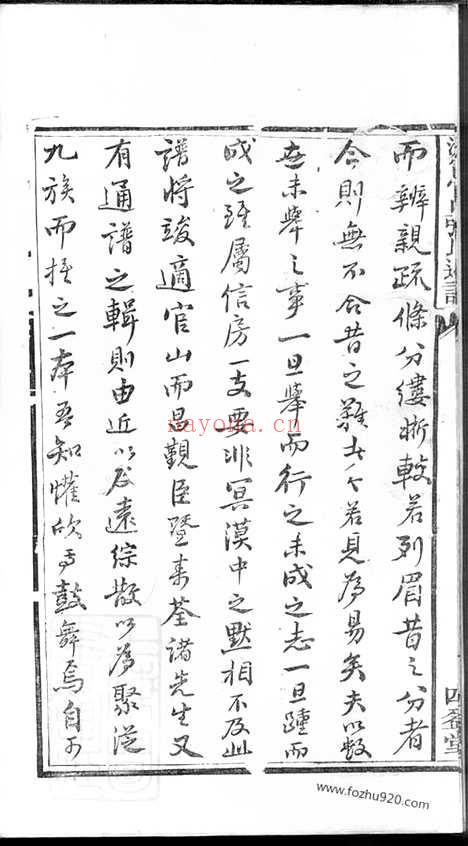 而辨親疏條分縷晰較若列眉昔之分者
今則無不合昔之難者今若見為易矣夫以數
世未舉之事一旦舉而行之未成之志一旦踵而
成之雖屬信房一支要非冥漠中之默相不及此
譜將竣適官山而昌覲臣暨来荃諸先生又
有通譜之輯則由近以及遠綜散以為聚從
九族而推之一本吾知懽欣而鼓舞焉自
通譜
四
堂
nayona.cn
www.fozhu920.com